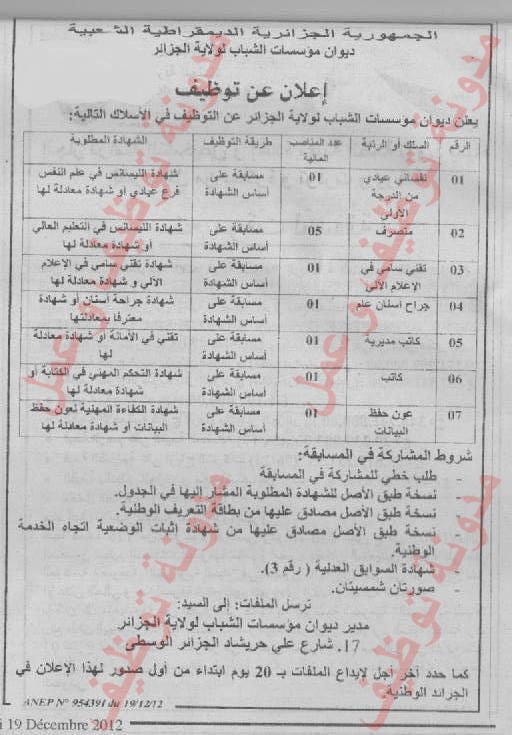 الجمهورية الجزائرية الديمقراطية الشعبية
ديوان مؤسسات الشباب لولاية الجزائر
إعلان عن توظيف
يعلن ديوان مؤسسات الشباب لولاية الجزائر عن التوظيف في الأسلاك التالية:
الرقم السلك أو الرتبة عدد المناصب المالية طريقة التوظيف الشهادة المطلوبة
01 نفساني عيادي من الدرجة الأولى 01 مسابقة على أساس الشهادة شهادة الليسانس في علم النفس فرع عيادي أو شهادة معادلة لها
02 متصرف 05 مسابقة على أساس الشهادة شهادة الليسانس في التعليم العالي أو شهادة معادلة لها
03 تقني سامي في الإعلام الآلي 01 مسابقة على أساس الشهادة شهادة تقني سامي في الإعلام الآلي و شهادة معادلة لها
04 جراح أسنان عام 01 مسابقة على أساس الشهادة شهادة جراحة أسنان أو شهادة معترفا بمعادلتها
05 كاتب مديرية 01 مسابقة على أساس الشهادة تقني في الأمانة أو شهادة معادلة لها
06 كاتب 01 مسابقة على أساس الشهادة شهادة التحكم المهني في الكتابة أو شهادة معادلة لها
07 عون حفظ البيانات 01 مسابقة على أساس الشهادة شهادة الكفاءة المهنية لعون حفظ البيانات أو شهادة معادلة لها
شروط المشاركة في المسابقة:
- طلب خطي للمشاركة في المسابقة
- نسخة طبق الأصل للشهادة المطلوبة المشار إليها في الجدول.
- نسخة طبق الأصل مصادق عليها من بطاقة التعريف الوطنية.
- نسخة طبق الأصل مصادق عليها من شهادة إثبات الوضعية اتجاه الخدمة
الوطنية.
- شهادة السوابق العدلية ( رقم 3).
- صورتان شمسيتان.
ترسل الملفات: إلى السيد:
مدير ديوان مؤسسات الشباب لولاية الجزائر
17. شارع علي حريشاد الجزائر الوسطى
كما حدد آخر أجل لإيداع الملفات بـ 20 يوم ابتداء من أول صدور لهذا الإعلان في
الجرائد الوطنية.
ANEP N° 954391 du 19/12/12
i 19 Décembre 2012
مدونة توظيف وعمل
مدونة توظيف وعمل
مدونة توظيف
مدونة توظيف